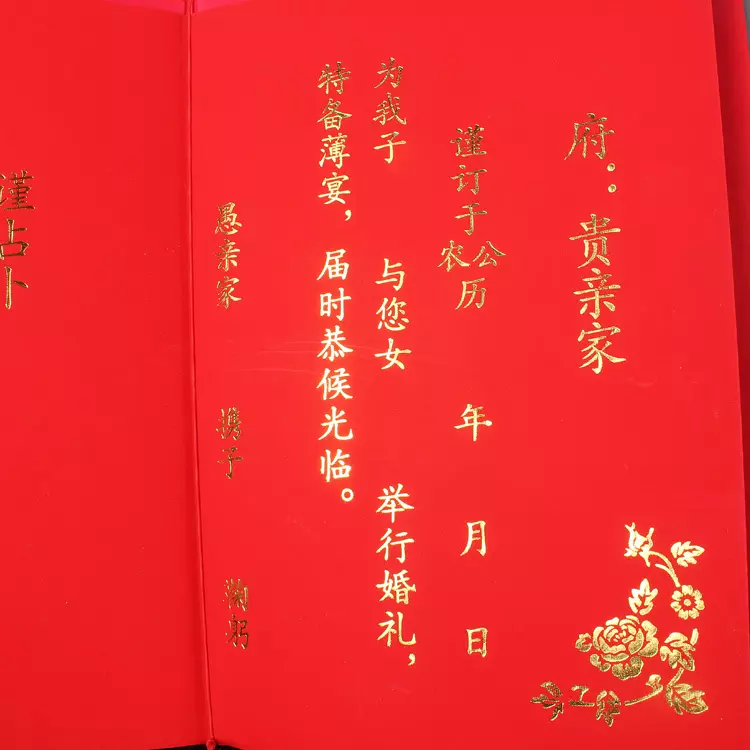 府：贵亲家
谨订于公历
农历 年 月 日
为我子 与您女 举行婚礼，
特备薄宴，届时恭候光临。
愚亲家 携子 鞠躬
谨占卜